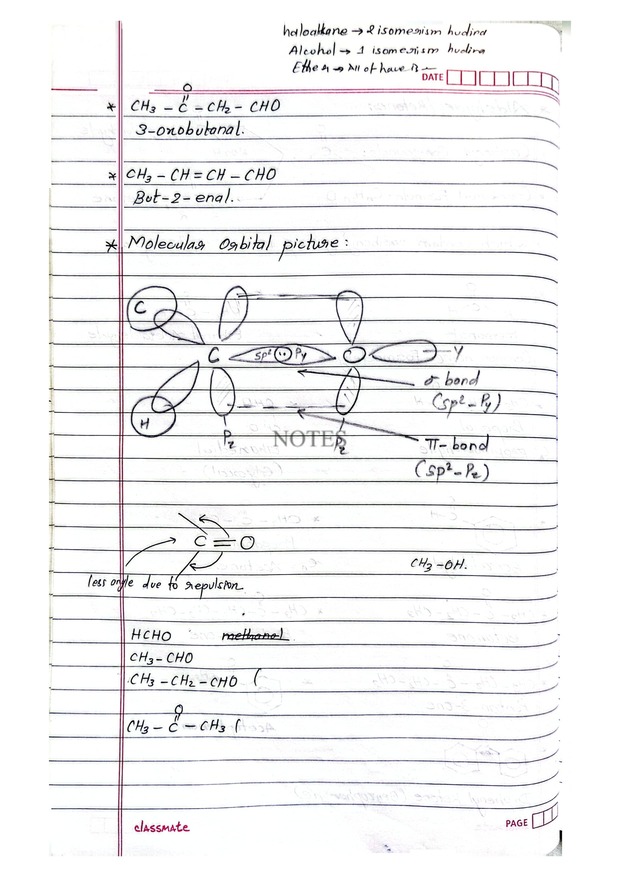 haloalkane → 2 isomerism hudina
Alcohol → 1 isomerism hudina
Ether → All of have
DATE
O
* CH3 - C - CH2 - CHO
3-oxobutanal.
* CH3 - CH = CH - CHO
But-2-enal.
* Molecular Orbital picture:
C
C sp² Py O Y
σ bond
(sp²-Py)
H
Pz NOTES Pz
π-bond
(sp²-Pz)
C = O
CH3-OH.
less angle due to repulsion.
HCHO methanal
CH3-CHO
CH3-CH2-CHO (
O
CH3 - C - CH3 (
classmate
PAGE